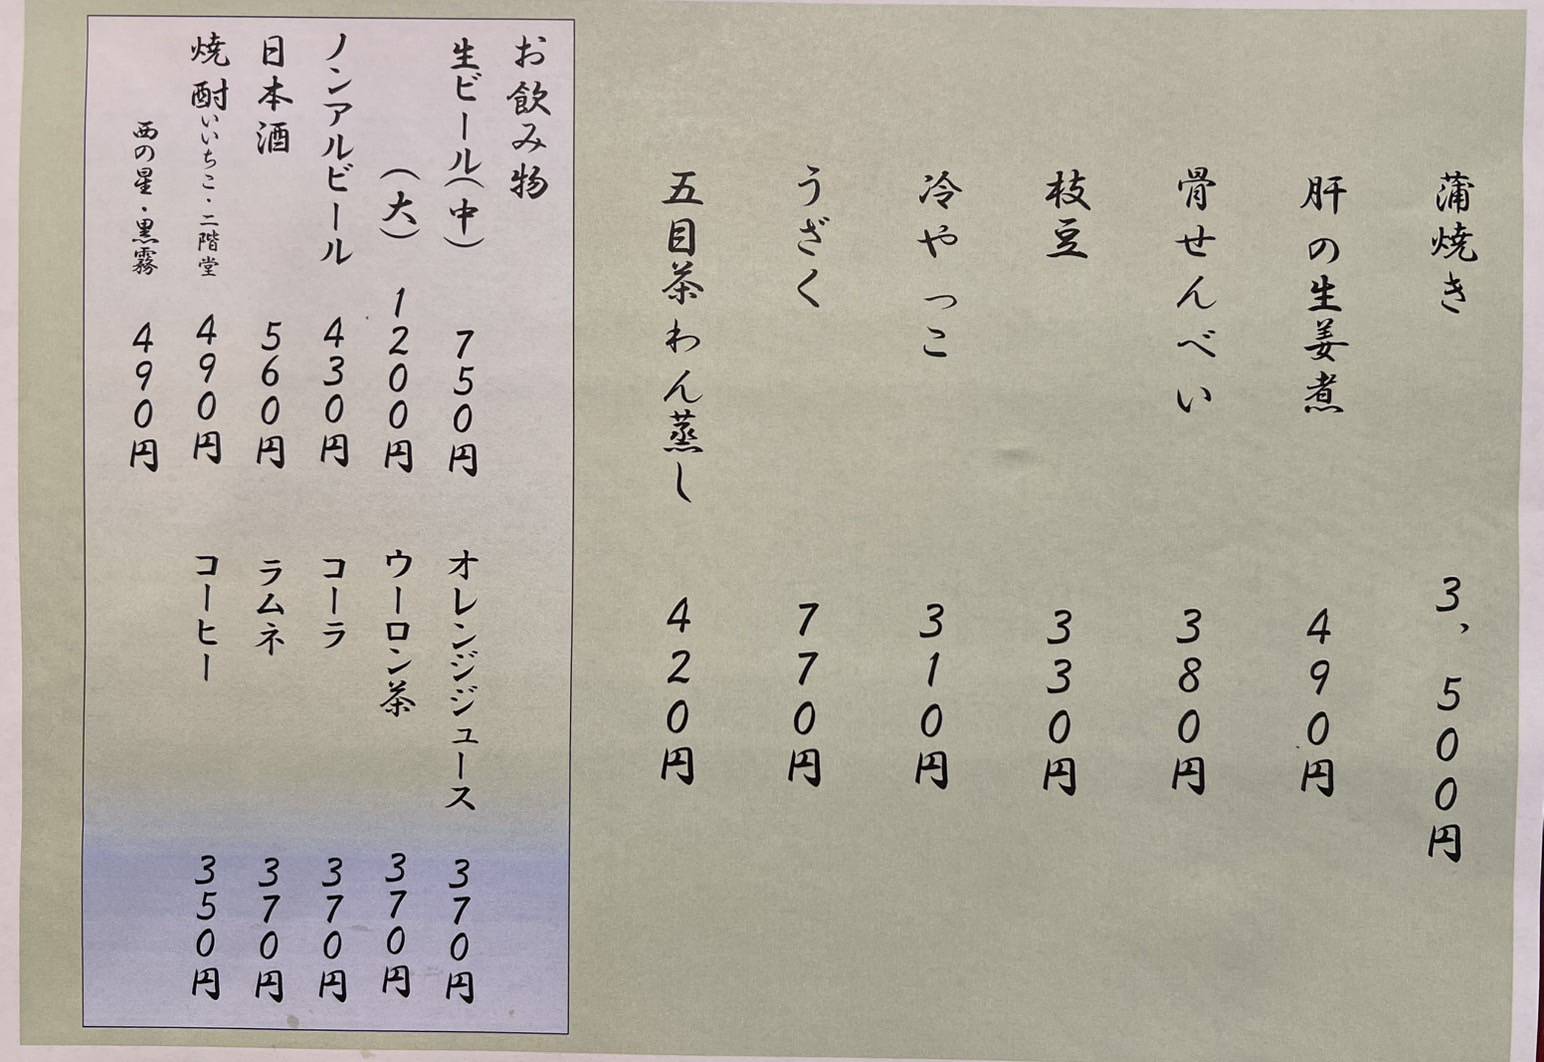 蒲焼き 3,500円
肝の生姜煮 490円
骨せんべい 380円
枝豆 330円
冷やっこ 310円
うざく 770円
五目茶わん蒸し 420円
お飲み物
生ビール(中) 750円
(大) 1200円
ノンアルビール 430円
日本酒 560円
焼酎いいちこ・二階堂 490円
西の星・黒霧 490円
オレンジジュース 370円
ウーロン茶 370円
コーラ 370円
ラムネ 370円
コーヒー 350円